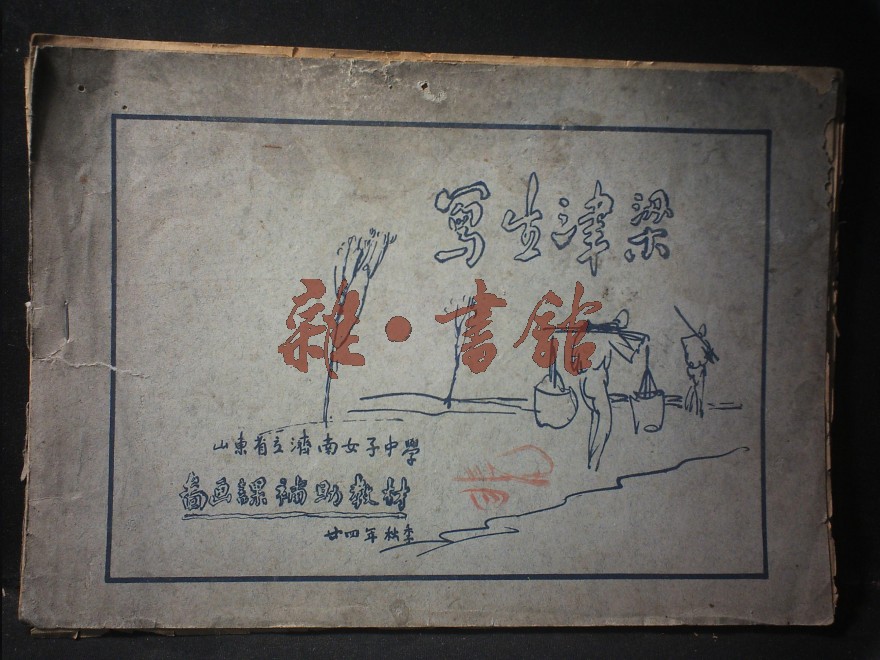 寫生津梁
雜·書館
山東省立濟南女子中學
圖画課補助教材
廿四年秋季